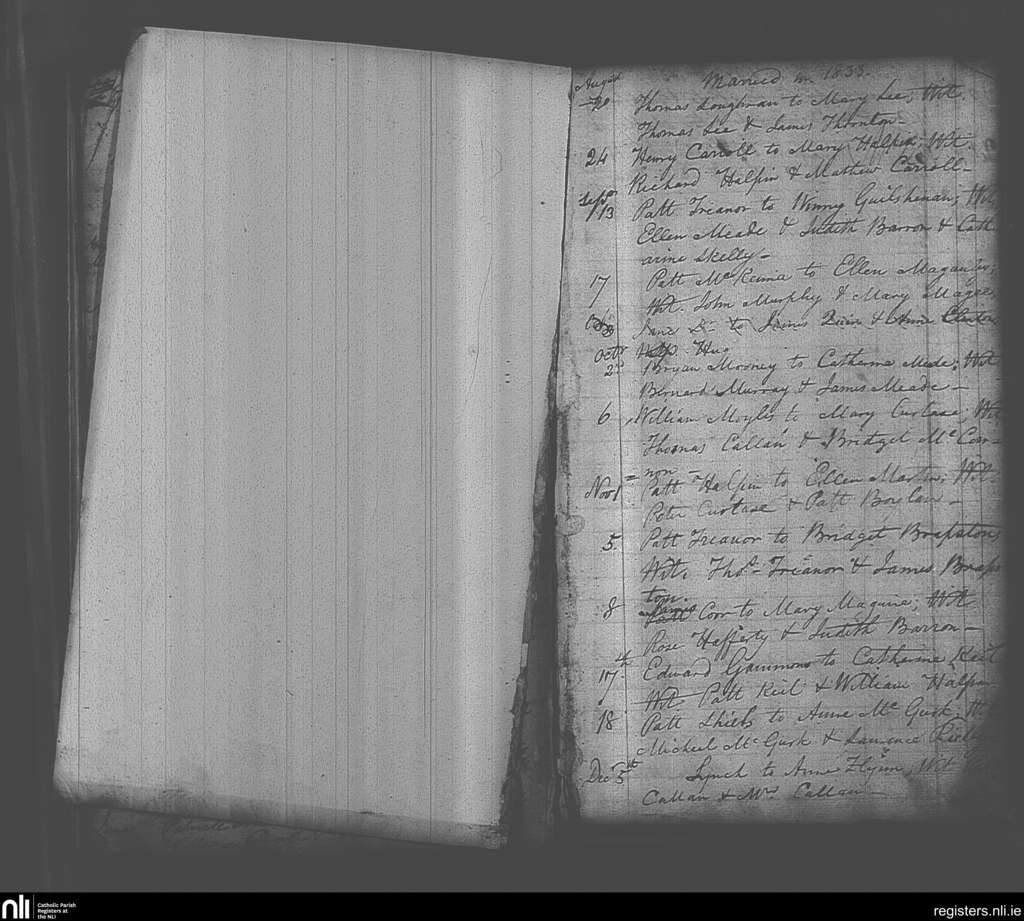 Married in 1833.
August
20 Thomas Loughran to Mary Lee; Wit.
Thomas Lee & James Thornton -
24 Henry Carroll to Mary Halpin; Wit.
Richard Halpin & Mathew Carroll -
Sepr 13 Patt Treanor to Winny Guilshenan; Wit,
Ellen Meade & Judith Barron & Cath
arine Skelly -
17 Patt McKenna to Ellen
Wit. John Murphy & Mary Magee,
to James Quin & Anne Clinton
Octr
2nd Bryan Mooney to Catherne Mede; Wit
Bernard Murray & James Meade -
6 William Moyles to Mary Curtase; Wit
Thomas Callan & Bridget McCor=
=non -
Novr 1 Patt Halpin to Ellen Martin; Wit.
Peter Curtase & Patt Bowlan -
5. Patt Treanor to Bridget Brapston;
Wit, Thos - Treanor & James Braps
ton.
8 James Corr to Mary Maguire; Wit
Rose Hafferty & Judith Barron -
17th Edward Gammons to Catherine Keil
Wit Patt Keil & William Halpin
18 Patt Shiels to Anne McGurk; W
Micheel McGurk & Laurence
Decr 5th Lynch to Anne Flynn, Wit
Callan & Mrs Callan -
nli
Catholic Parish
Registers at
the NLI
registers.nli.ie